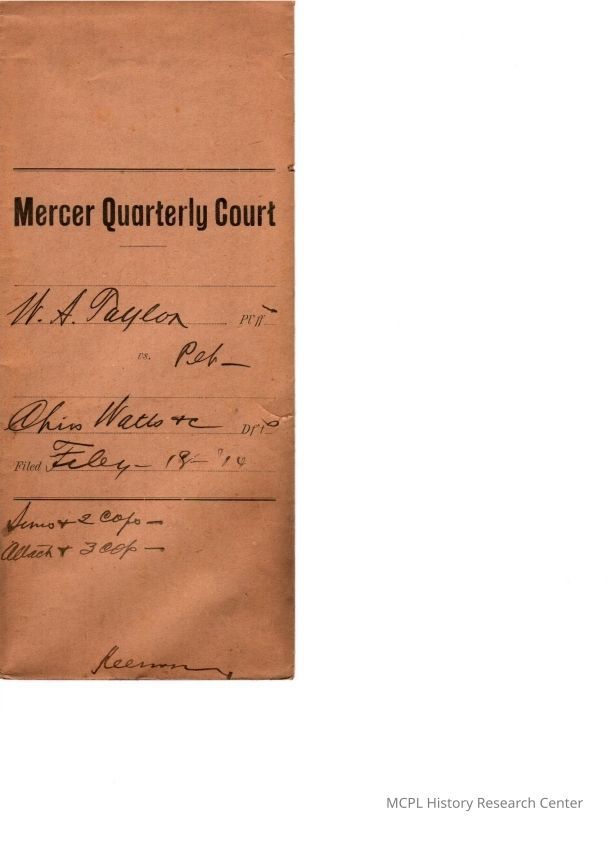 Mercer Quarterly Court
W. A. Taylor Pl'ff
vs. Pet—
Chis Watts &c Df't
Filed Feby— 18— '14
Sums & 2 Cops—
Attach & 3 cop—
Keenon,
MCPL History Research Center